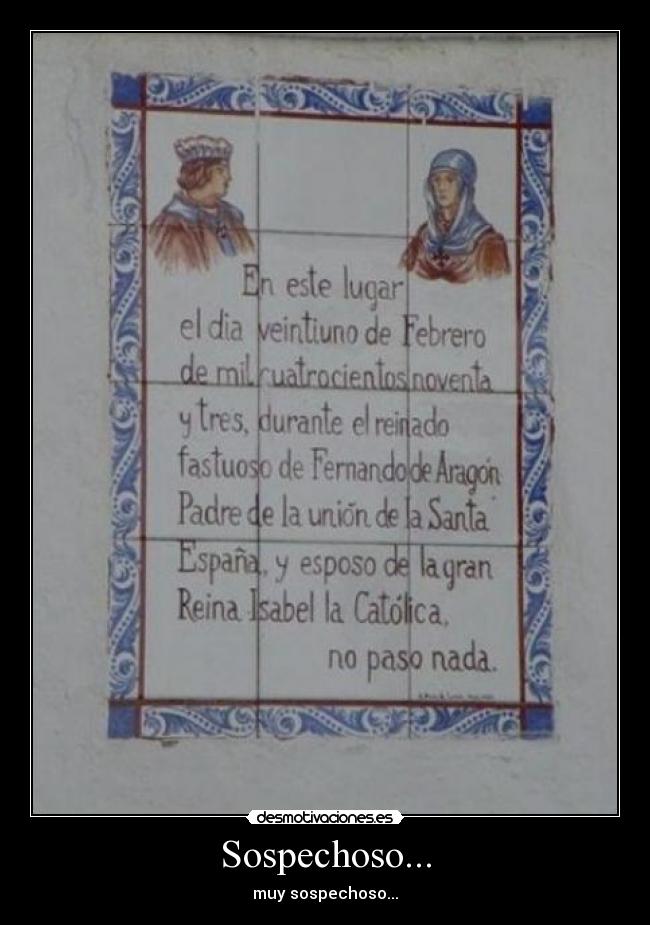 En este lugar
el dia veintiuno de Febrero
de mil cuatrocientos noventa
y tres, durante el reinado
fastuoso de Fernando de Aragón
Padre de la unión de la Santa
España, y esposo de la gran
Reina Isabel la Católica,
no paso nada.
desmotivaciones.es
Sospechoso...
muy sospechoso...